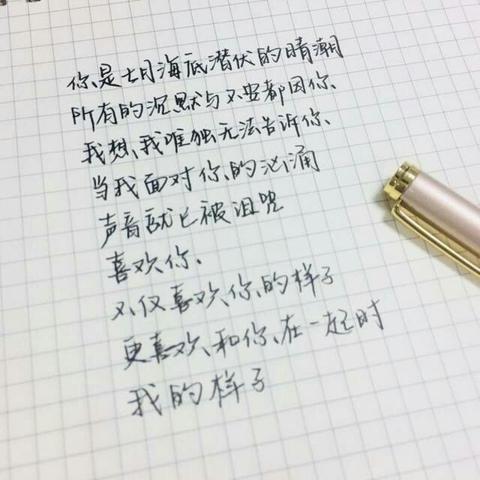 你是七月海底潜伏的晴潮
所有的沉默与不安都因你、
我想、我唯独无法告诉你、
当我面对你、的汹涌
声音就已被诅咒
喜欢你、
不仅喜欢、你、的样子
更喜欢、和你、在一起时
我的样子